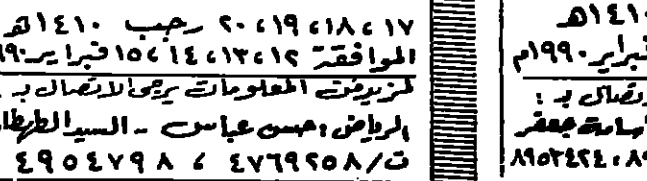 ١٧ ، ١٨ ، ١٩ ، ٢٠ رجب ١٤١٠هـ
الموافقة ١٢ ، ١٣ ، ١٤ ، ١٥ فبراير ٩٩٠
لمزيد من المعلومات يرجى الاتصال بـ :
الرياض : حسن عباس - السيد الطهطا
ت/ ٤٧٦٩٢٥٨ ، ٤٩٠٤٧٩٨
١٤١٠هـ
فبراير ١٩٩٠م
الاتصال بـ :
أسامة جعفر
٨٩٥٣٤٢٤ ، ٨٩